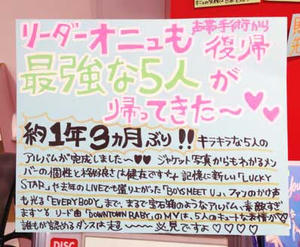 リーダーオニュも声帯手術から復帰
最強な5人が
帰ってきた〜♡♥
約1年3ヵ月ぶり!! キラキラな5人の
アルバムが完成しました〜♡♥ ジャケット写真からもわかるメン
バーの個性と格好良さは健在です♪ 記憶に新しい「LUCKY
STAR」や去年のLIVEでも盛り上がった「BOYS MEET U」、ファンのかけ声
も光る「EVERYBODY」まで、まるで宝石箱のようなアルバム、素敵すぎ
ます〜 リード曲「DOWNTOWN BABY」のMVは、5人のキュートな表情が♡
誰もが認めるダンスは超〜必見ですよ♡♡♡♡
DISC